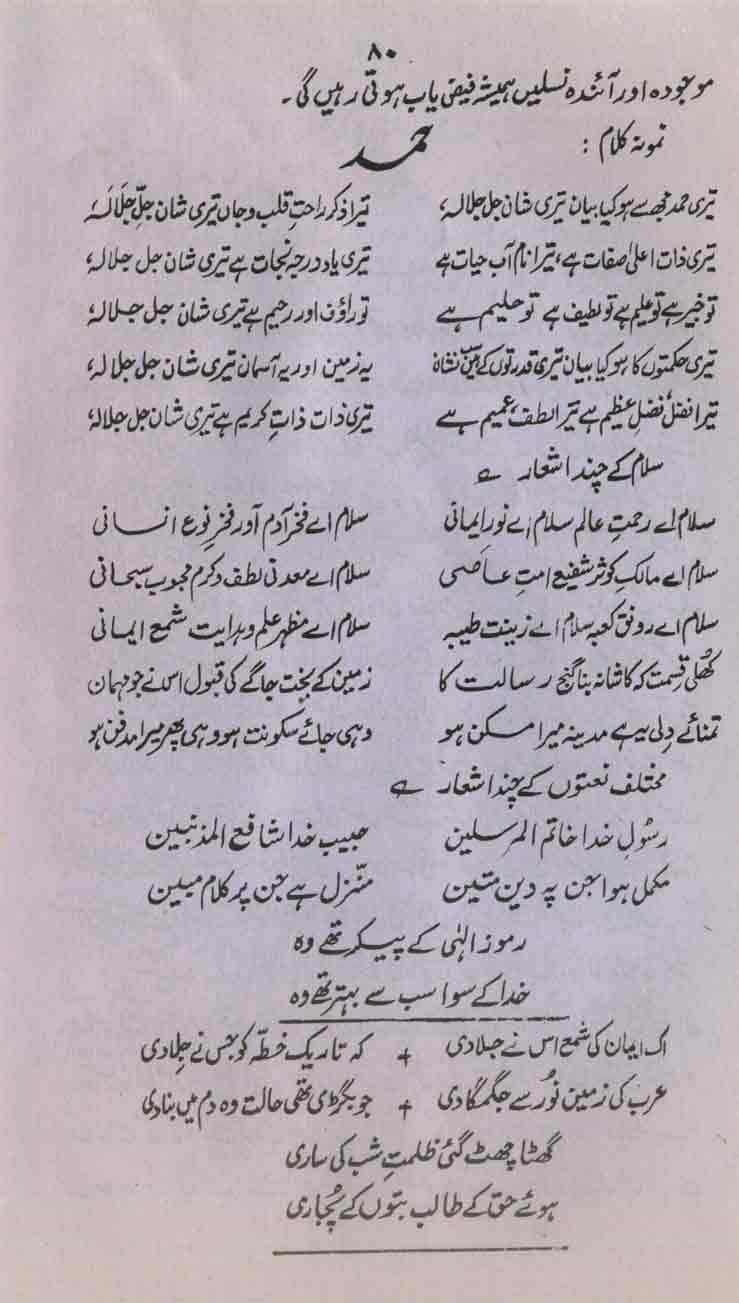 ۸۰
موجودہ اور آئندہ نسلیں ہمیشہ فیض یاب ہوتی رہیں گی۔
نمونہ کلام : حمد
تیری حمد مجھ سے ہو کیا بیان تیری شان جل جلالہٗ تیرا ذکر راحتِ قلب و جاں تیری شان جلّ جلالہٗ
تیری ذات اعلیٰ صفات ہے، تیرا نام آب حیات ہے تیری یاد درجہ نجات ہے تیری شان جل جلالہٗ
تو خبیر ہے تو علیم ہے تو لطیف ہے تو حلیم ہے تو راؤف اور رحیم ہے تیری شان جل جلالہٗ
تیری حکمتوں کا ہو کیا بیان تیری قدرتوں کے ہیں سب نشاں یہ زمین اور یہ آسمان تیری شان جل جلالہٗ
تیرا فضل فضلِ عظیم ہے تیرا لطف، عمیم ہے تیری ذات ذاتِ کریم ہے تیری شان جل جلالہٗ
سلام کے چند اشعار ے
سلام اے رحمتِ عالم سلام اے نورِ ایمانی سلام اے فخرِ آدم اور فخرِ نوع انسانی
سلام اے مالکِ کوثر شفیع امتِ عاصی سلام اے معدنِ لطف و کرم محبوب سبحانی
سلام اے رونق کعبہ سلام اے زینت طیبہ سلام اے مظہر علم و ہدایت شمع ایمانی
کھلی قسمت کہ کاشانہ بنا گنج رسالت کا زمین کے بخت جاگے کی قبول اس نے جو مہمان
تمنائے دلی یہ ہے مدینہ میرا مسکن ہو وہی جائے سکونت ہو وہی پھر میرا مدفن ہو
مختلف نعتوں کے چند اشعار ے
رسولِ خدا خاتم المرسلین حبیب خدا شافع المذنبین
مکمل ہوا جن پہ دین متین منزل ہے جن پر کلام مبین
رموز الٰہی کے پیکر تھے وہ
خدا کے سوا سب سے بہتر تھے وہ
اک ایمان کی شمع اس نے جلا دی + کہ تاریک خطّہ کو جس نے جِلا دی
عرب کی زمین نُور سے جگمگا دی + جو بگڑی تھی حالت وہ دم میں بنا دی
گھٹا چھٹ گئی ظلمتِ شب کی ساری
ہوئے حق کے طالب بتوں کے پُجاری